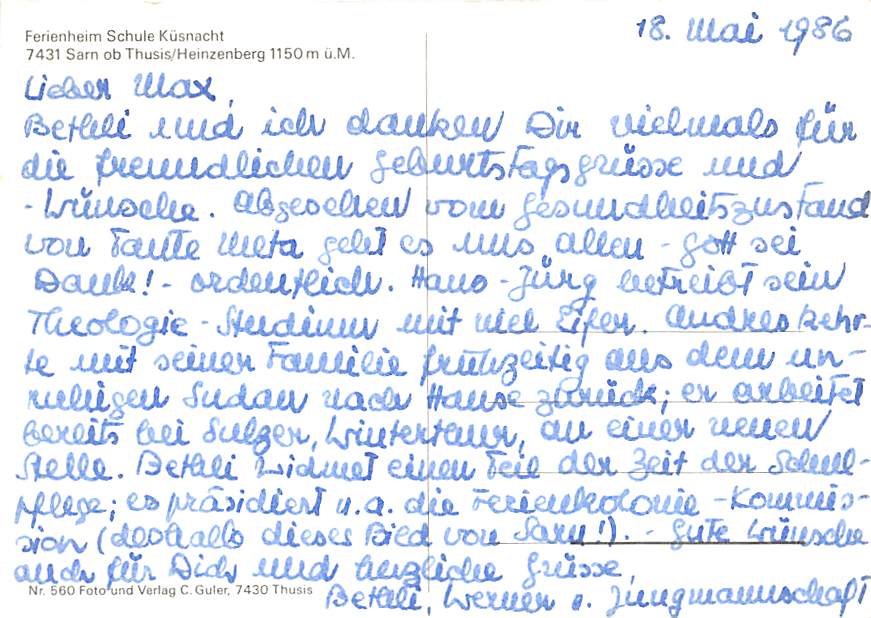 Ferienheim Schule Küsnacht
7431 Sarn ob Thusis/Heinzenberg 1150 m ü.M.
18. Mai 1986
Lieber Max,
Bethli und ich danken Dir vielmals für
die freundlichen Geburtstagsgrüsse und
-Wünsche. Abgesehen vom Gesundheitszustand
von Tante Meta geht es uns allen - Gott sei
Dank! - ordentlich. Hans-Jürg betreibt sein
Theologie-Studium mit viel Eifer. Andres kehr-
te mit seiner Familie frühzeitig aus dem un-
ruhigen Sudan nach Hause zurück; er arbeitet
bereits bei Sulzer, Winterthur, an einer neuen
Stelle. Bethli widmet einen Teil der Zeit der Schul-
pflege; es präsidiert u.a. die Ferienkolonie-Kommis-
sion (deshalb dieses Bild von Sarn!). - Gute Wünsche
auch für Dich und herzliche Grüsse,
Nr. 560 Foto und Verlag C. Guler, 7430 Thusis
Bethli, Werner u. Jungmannschaft